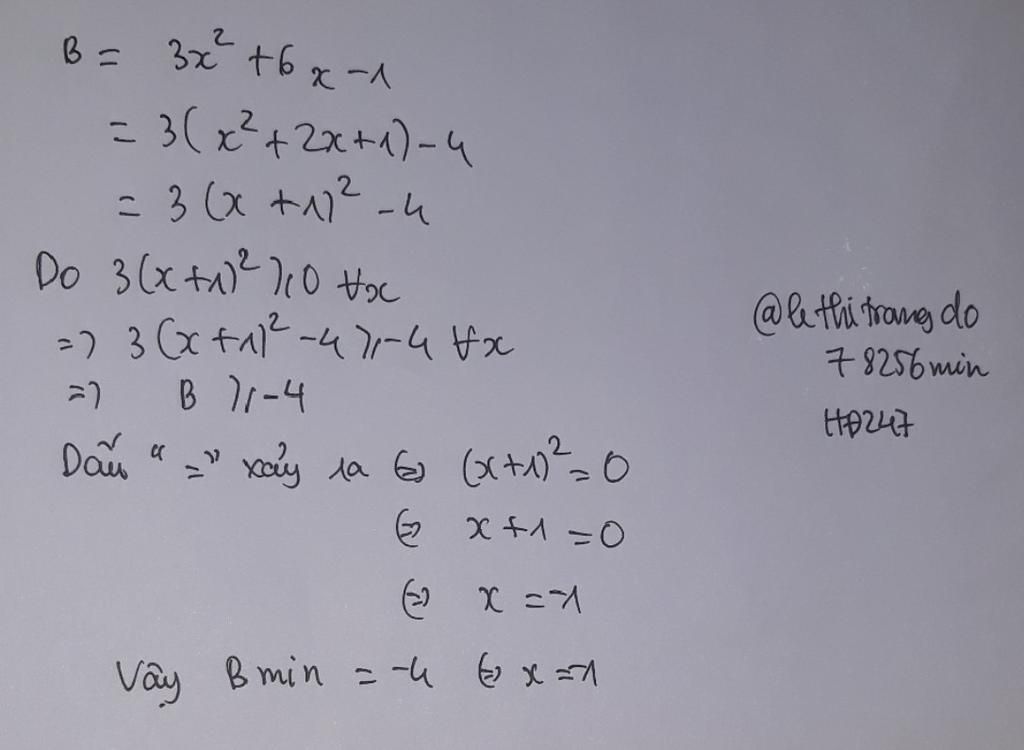 B = 3x² + 6x - 1
= 3(x² + 2x + 1) - 4
= 3(x + 1)² - 4
Do 3(x + 1)² ≥ 0 ∀x
=> 3(x + 1)² - 4 ≥ -4 ∀x
=> B ≥ -4
Dấu "=" xảy ra ⇔ (x+1)² = 0
⇔ x + 1 = 0
⇔ x = -1
Vậy B min = -4 ⇔ x = -1
@lethitrangdo
78256min
HĐ247